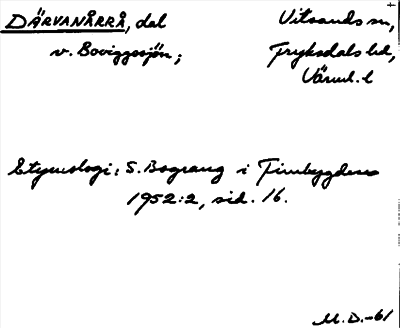 DÄRVANÅRRÅ, dal
v. Boviggesjön;
Vitsands sn,
Fryksdals hd,
Värml. l
Etymologi: S. Bograng i Finnbygden
1952:2, sid. 16.
M. D. -61